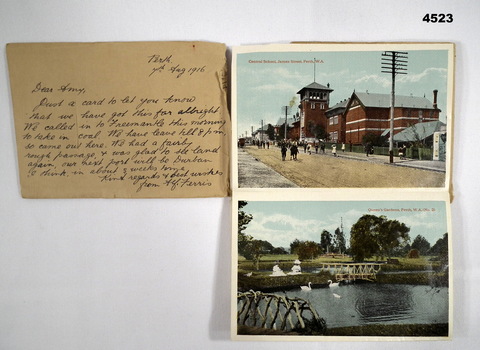 4523
Perth
7th Aug 1916
Dear Amy,
Just a card to let you know
that we have got this far allright.
We called in to Freemantle this morning
to take in coal. We have leave till 8 p.m.
so came out here. We had a fairly
rough passage, & was glad to see land
again, our next port will be Durban
I think, in about 3 weeks time.
Kind regards & best wishes
from A.G. Ferris
Central School, James Street, Perth, W.A.
Queen's Gardens, Perth, W.A.